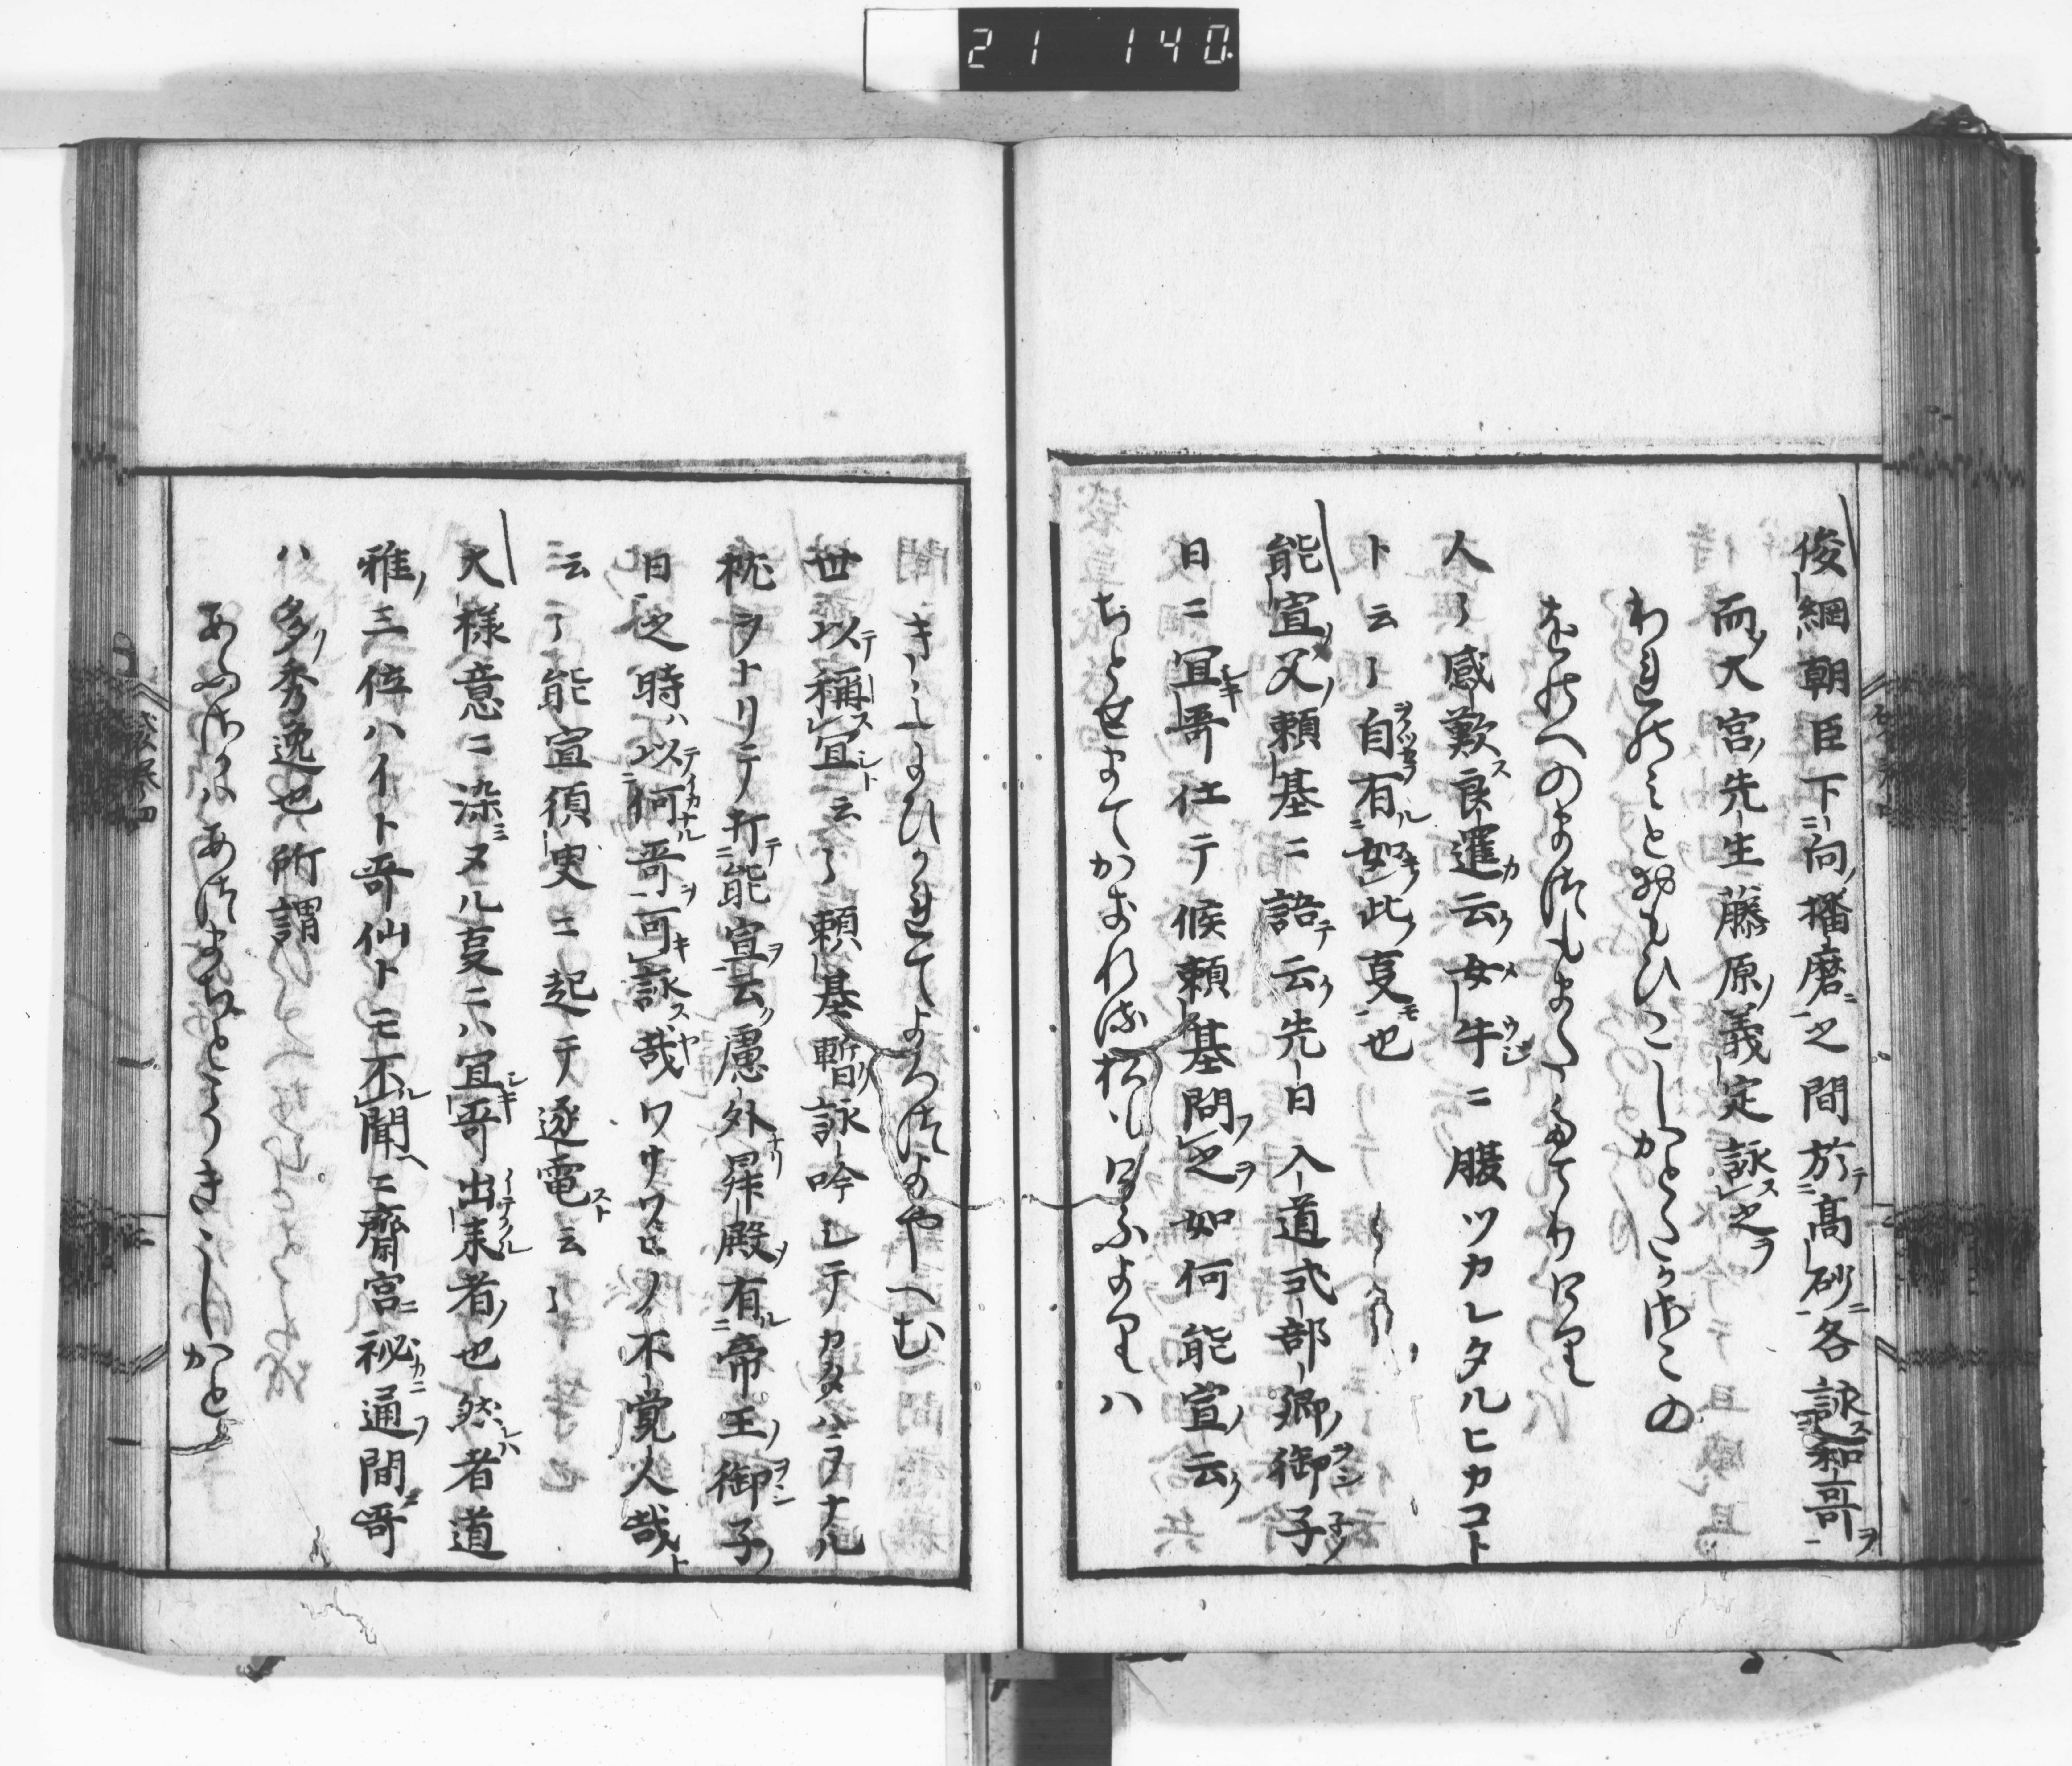 21 140
俊綱朝臣下向播磨之間於高砂各詠和哥
而大宮先生藤原義定詠之
われのみとおもひこしかとたかさこの
をのへのまつもまたたてりけり
人々感歎良暹云女牛ニ腹ツカレタルヒカコト
ト云々自有如此事也
能宣父頼基ニ語云先日入道式部卿御子
日ニ宜哥仕テ候頼基問之如何能宣云
ちとせまてかきれる松もけふよりハ
きみにひかれてよろつよやへむ
世以稱宜云々頼基暫詠吟シテカタハラナル
枕ヲトリテ打能宣云慮外昇殿有帝王御子
日之時ハ以何哥可詠哉ワサワヒノ不覚人哉ト
云々能宣須臾ニ起テ逐電云々
大様意ニ染ヌル事ニハ宜哥出来者也然者道
雅三位ハイト哥仙トモ不聞ニ齋宮秘通間哥
ハ多秀逸也所謂
あふさかハあつまちとこそきゝしかと